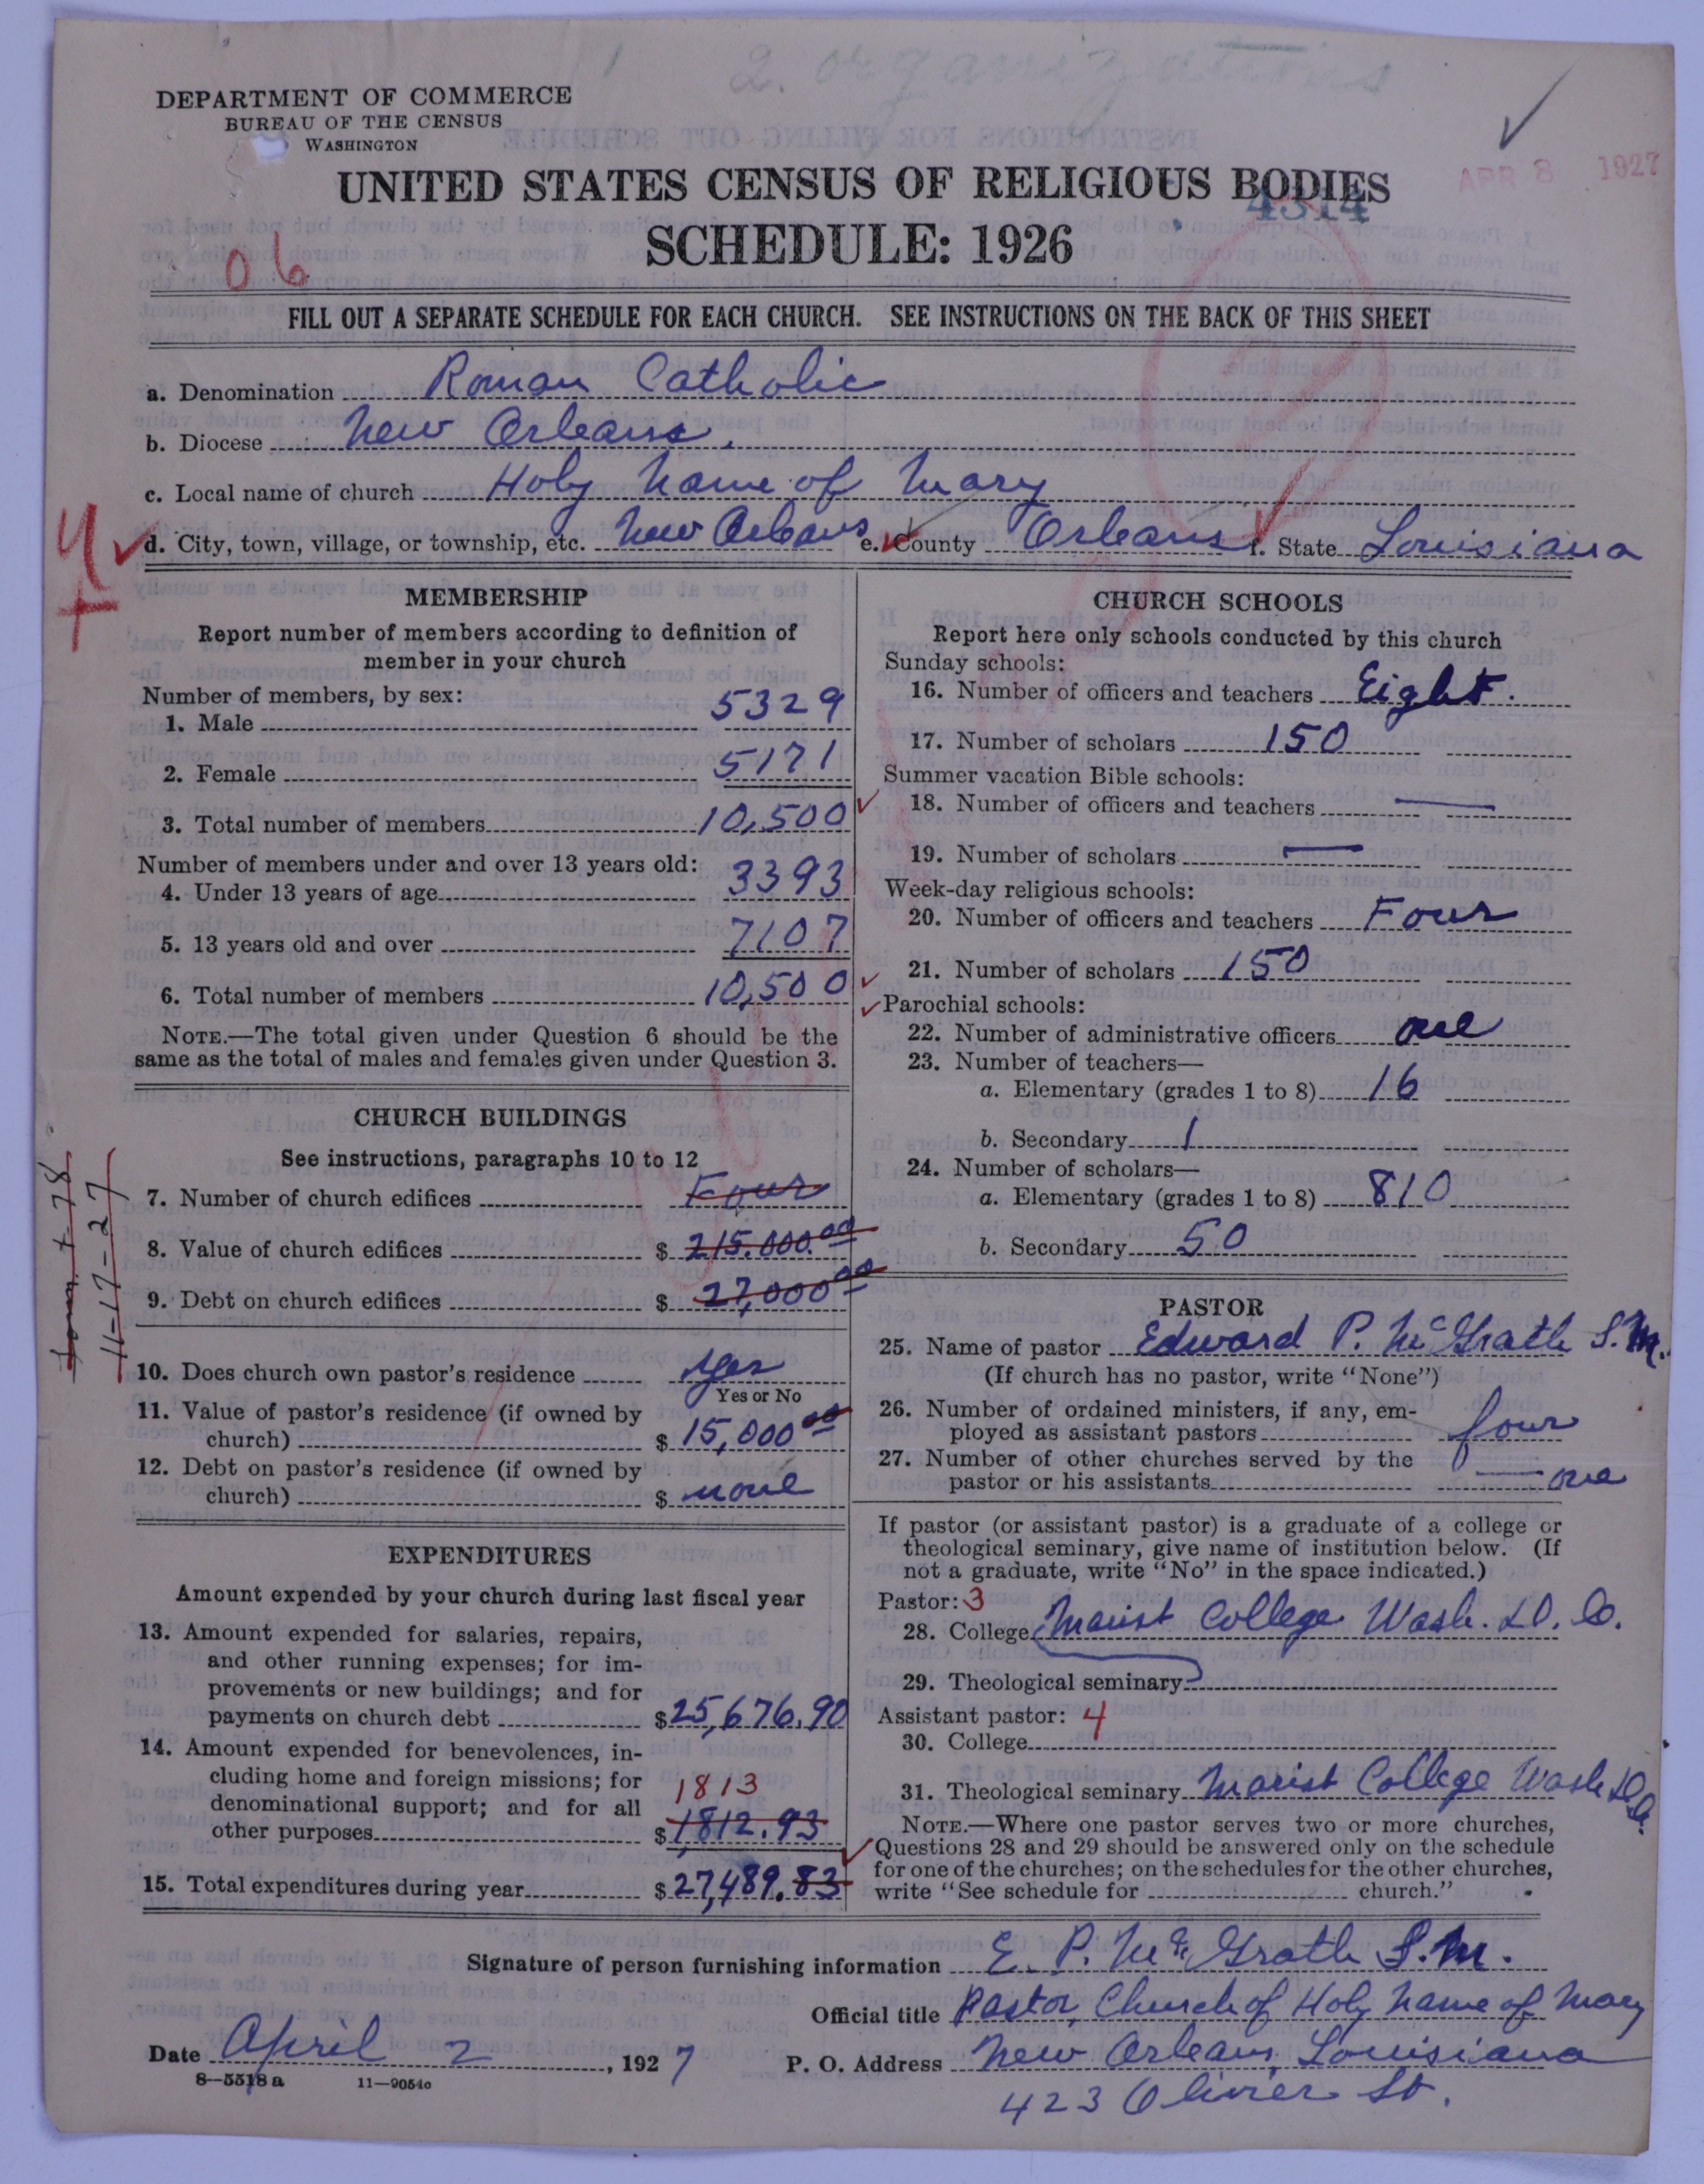 2. organizations
DEPARTMENT OF COMMERCE
BUREAU OF THE CENSUS
WASHINGTON
APR 8 1927
UNITED STATES CENSUS OF RELIGIOUS BODIES
4314
SCHEDULE: 1926
06
FILL OUT A SEPARATE SCHEDULE FOR EACH CHURCH. SEE INSTRUCTIONS ON THE BACK OF THIS SHEET
a. Denomination Roman Catholic
b. Diocese New Orleans.
c. Local name of church Holy Name of Mary
d. City, town, village, or township, etc. New Orleans e. County Orleans f. State Louisiana
MEMBERSHIP
Report number of members according to definition of
member in your church
Number of members, by sex:
1. Male 5329
2. Female 5171
3. Total number of members 10,500
Number of members under and over 13 years old:
4. Under 13 years of age 3393
5. 13 years old and over 7107
6. Total number of members 10,500
NOTE.—The total given under Question 6 should be the
same as the total of males and females given under Question 3.
CHURCH BUILDINGS
See instructions, paragraphs 10 to 12
7. Number of church edifices Four
8. Value of church edifices $ 215.000.00
9. Debt on church edifices $ 27,000 00
11-17-27
10. Does church own pastor's residence Yes
Yes or No
11. Value of pastor's residence (if owned by
church) $ 15,000 00
12. Debt on pastor's residence (if owned by
church) $ none
EXPENDITURES
Amount expended by your church during last fiscal year
13. Amount expended for salaries, repairs,
and other running expenses; for im-
provements or new buildings; and for
payments on church debt $25,676.90
14. Amount expended for benevolences, in-
cluding home and foreign missions; for
denominational support; and for all 1813
other purposes $1812.93
15. Total expenditures during year $27,489.83
CHURCH SCHOOLS
Report here only schools conducted by this church
Sunday schools:
16. Number of officers and teachers Eight.
17. Number of scholars 150
Summer vacation Bible schools:
18. Number of officers and teachers —
19. Number of scholars —
Week-day religious schools:
20. Number of officers and teachers Four
21. Number of scholars 150
Parochial schools:
22. Number of administrative officers one
23. Number of teachers—
a. Elementary (grades 1 to 8) 16
b. Secondary 1
24. Number of scholars—
a. Elementary (grades 1 to 8) 810
b. Secondary 50
PASTOR
25. Name of pastor Edward P. McGrath S.M.
(If church has no pastor, write "None")
26. Number of ordained ministers, if any, em-
ployed as assistant pastors four
27. Number of other churches served by the
pastor or his assistants — one
If pastor (or assistant pastor) is a graduate of a college or
theological seminary, give name of institution below. (If
not a graduate, write "No" in the space indicated.)
Pastor: 3
28. College Marist College Wash. D. C.
29. Theological seminary
Assistant pastor: 4
30. College
31. Theological seminary Marist College Wash D.C.
NOTE.—Where one pastor serves two or more churches,
Questions 28 and 29 should be answered only on the schedule
for one of the churches; on the schedules for the other churches,
write "See schedule for church."
Signature of person furnishing information E. P. McGrath S.M.
Official title Pastor, Church of Holy Name of Mary
Date April 2, 1927 P. O. Address New Orleans, Louisiana
8—5518 a 11—9054o
423 Olivier St.